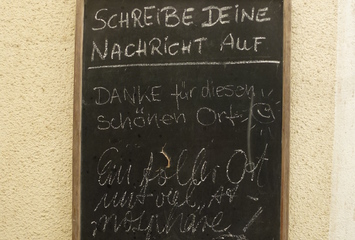 SCHREIBE DEINE
NACHRICHT AUF
DANKE für diesen
schönen Ort
Ein toller Ort
mit viel At-
mosphäre